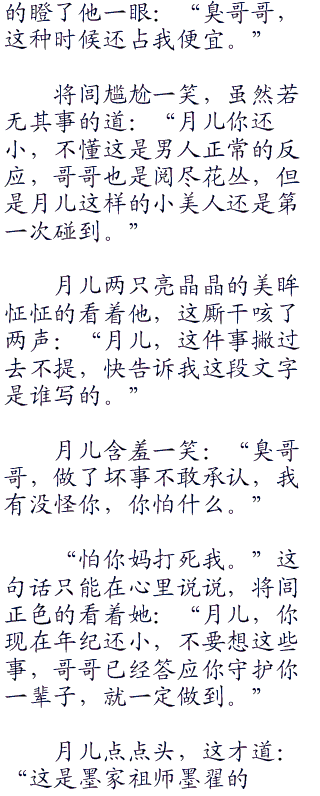 的瞪了他一眼：“臭哥哥，
这种时候还占我便宜。”
将闾尴尬一笑，虽然若
无其事的道：“月儿你还
小，不懂这是男人正常的反
应，哥哥也是阅尽花丛，但
是月儿这样的小美人还是第
一次碰到。”
月儿两只亮晶晶的美眸
怔怔的看着他，这厮干咳了
两声：“月儿，这件事撇过
去不提，快告诉我这段文字
是谁写的。”
月儿含羞一笑：“臭哥
哥，做了坏事不敢承认，我
有没怪你，你怕什么。”
“怕你妈打死我。”这
句话只能在心里说说，将闾
正色的看着她：“月儿，你
现在年纪还小，不要想这些
事，哥哥已经答应你守护你
一辈子，就一定做到。”
月儿点点头，这才道：
“这是墨家祖师墨翟的